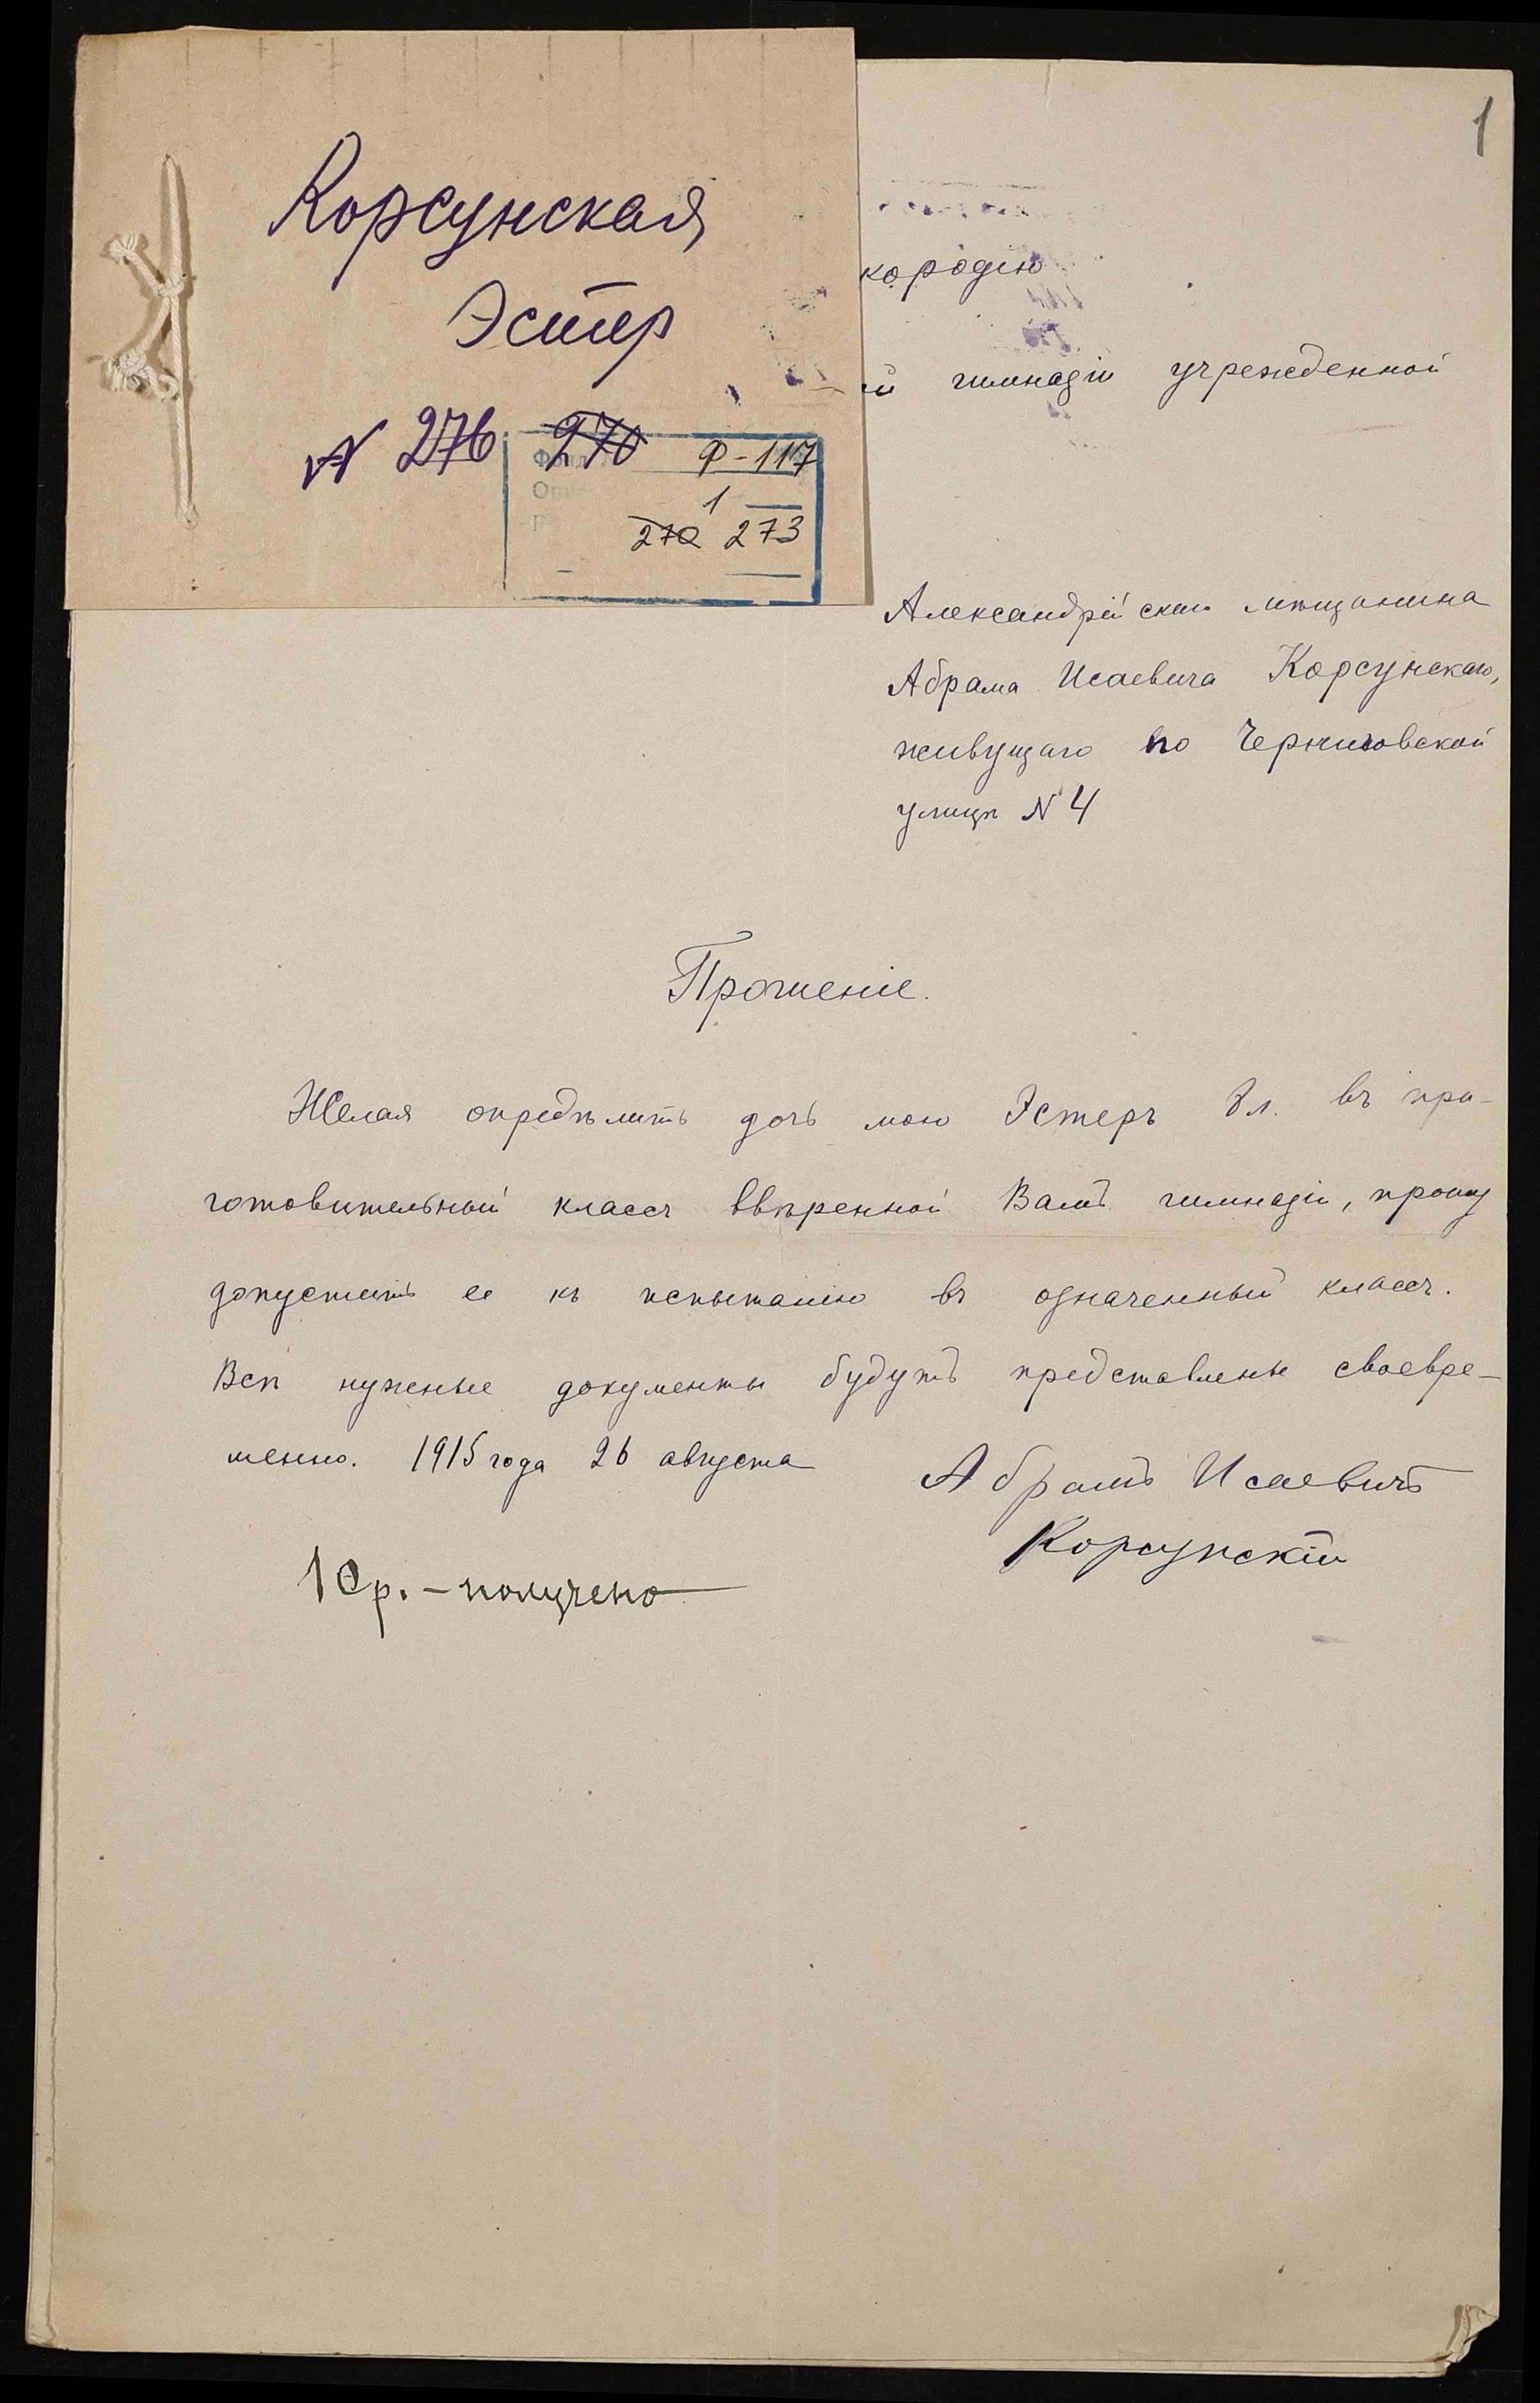 1
Корсунская
Эстер
№ 276 270 Ф-117
1
270 273
кородію
й гимназіи учрежденной
Александрійскаго мѣщанина
Абрама Исаевича Корсунскаго,
живущаго по Черниговской
улицѣ № 4
Прошеніе.
Желая опредѣлить дочь мою Эстеръ 8 л. въ при-
готовительный классъ ввѣренной Вамъ гимназіи, прошу
допустить ее къ испытанію въ означенный классъ.
Всѣ нужные документы будутъ представлены своевре-
менно. 1915 года 26 августа
Абрамъ Исаевичъ
Корсунскій
10р. – получено